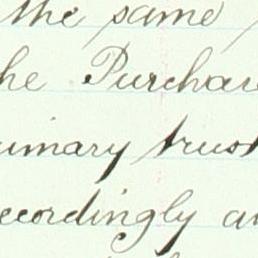 the same
he Purchas
rimary trust
ccordingly a